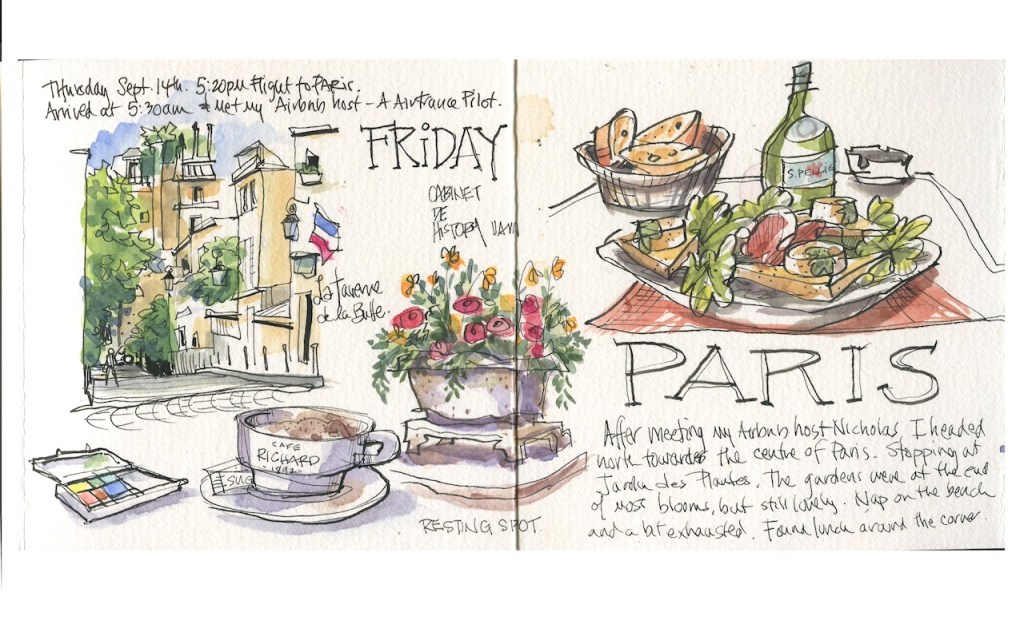 Thursday Sept. 14th. 5:20pm Flight to Paris.
Arrived at 5:30am & met my Airbnb host - A Airfrance Pilot.
FRiDAY
CABINET
DE
HISTORY
La Taverne
de la Butte.
S. PELLE
CAFE
RICHARD
1892
SUG
RESTING SPOT.
PARIS
After meeting my Airbnb host Nicholas I headed
north towards the centre of Paris. Stopping at
Jardin des Plantes. The gardens were at the end
of most blooms, but still lovely. Nap on the bench
and a bit exhausted. Found lunch around the corner.